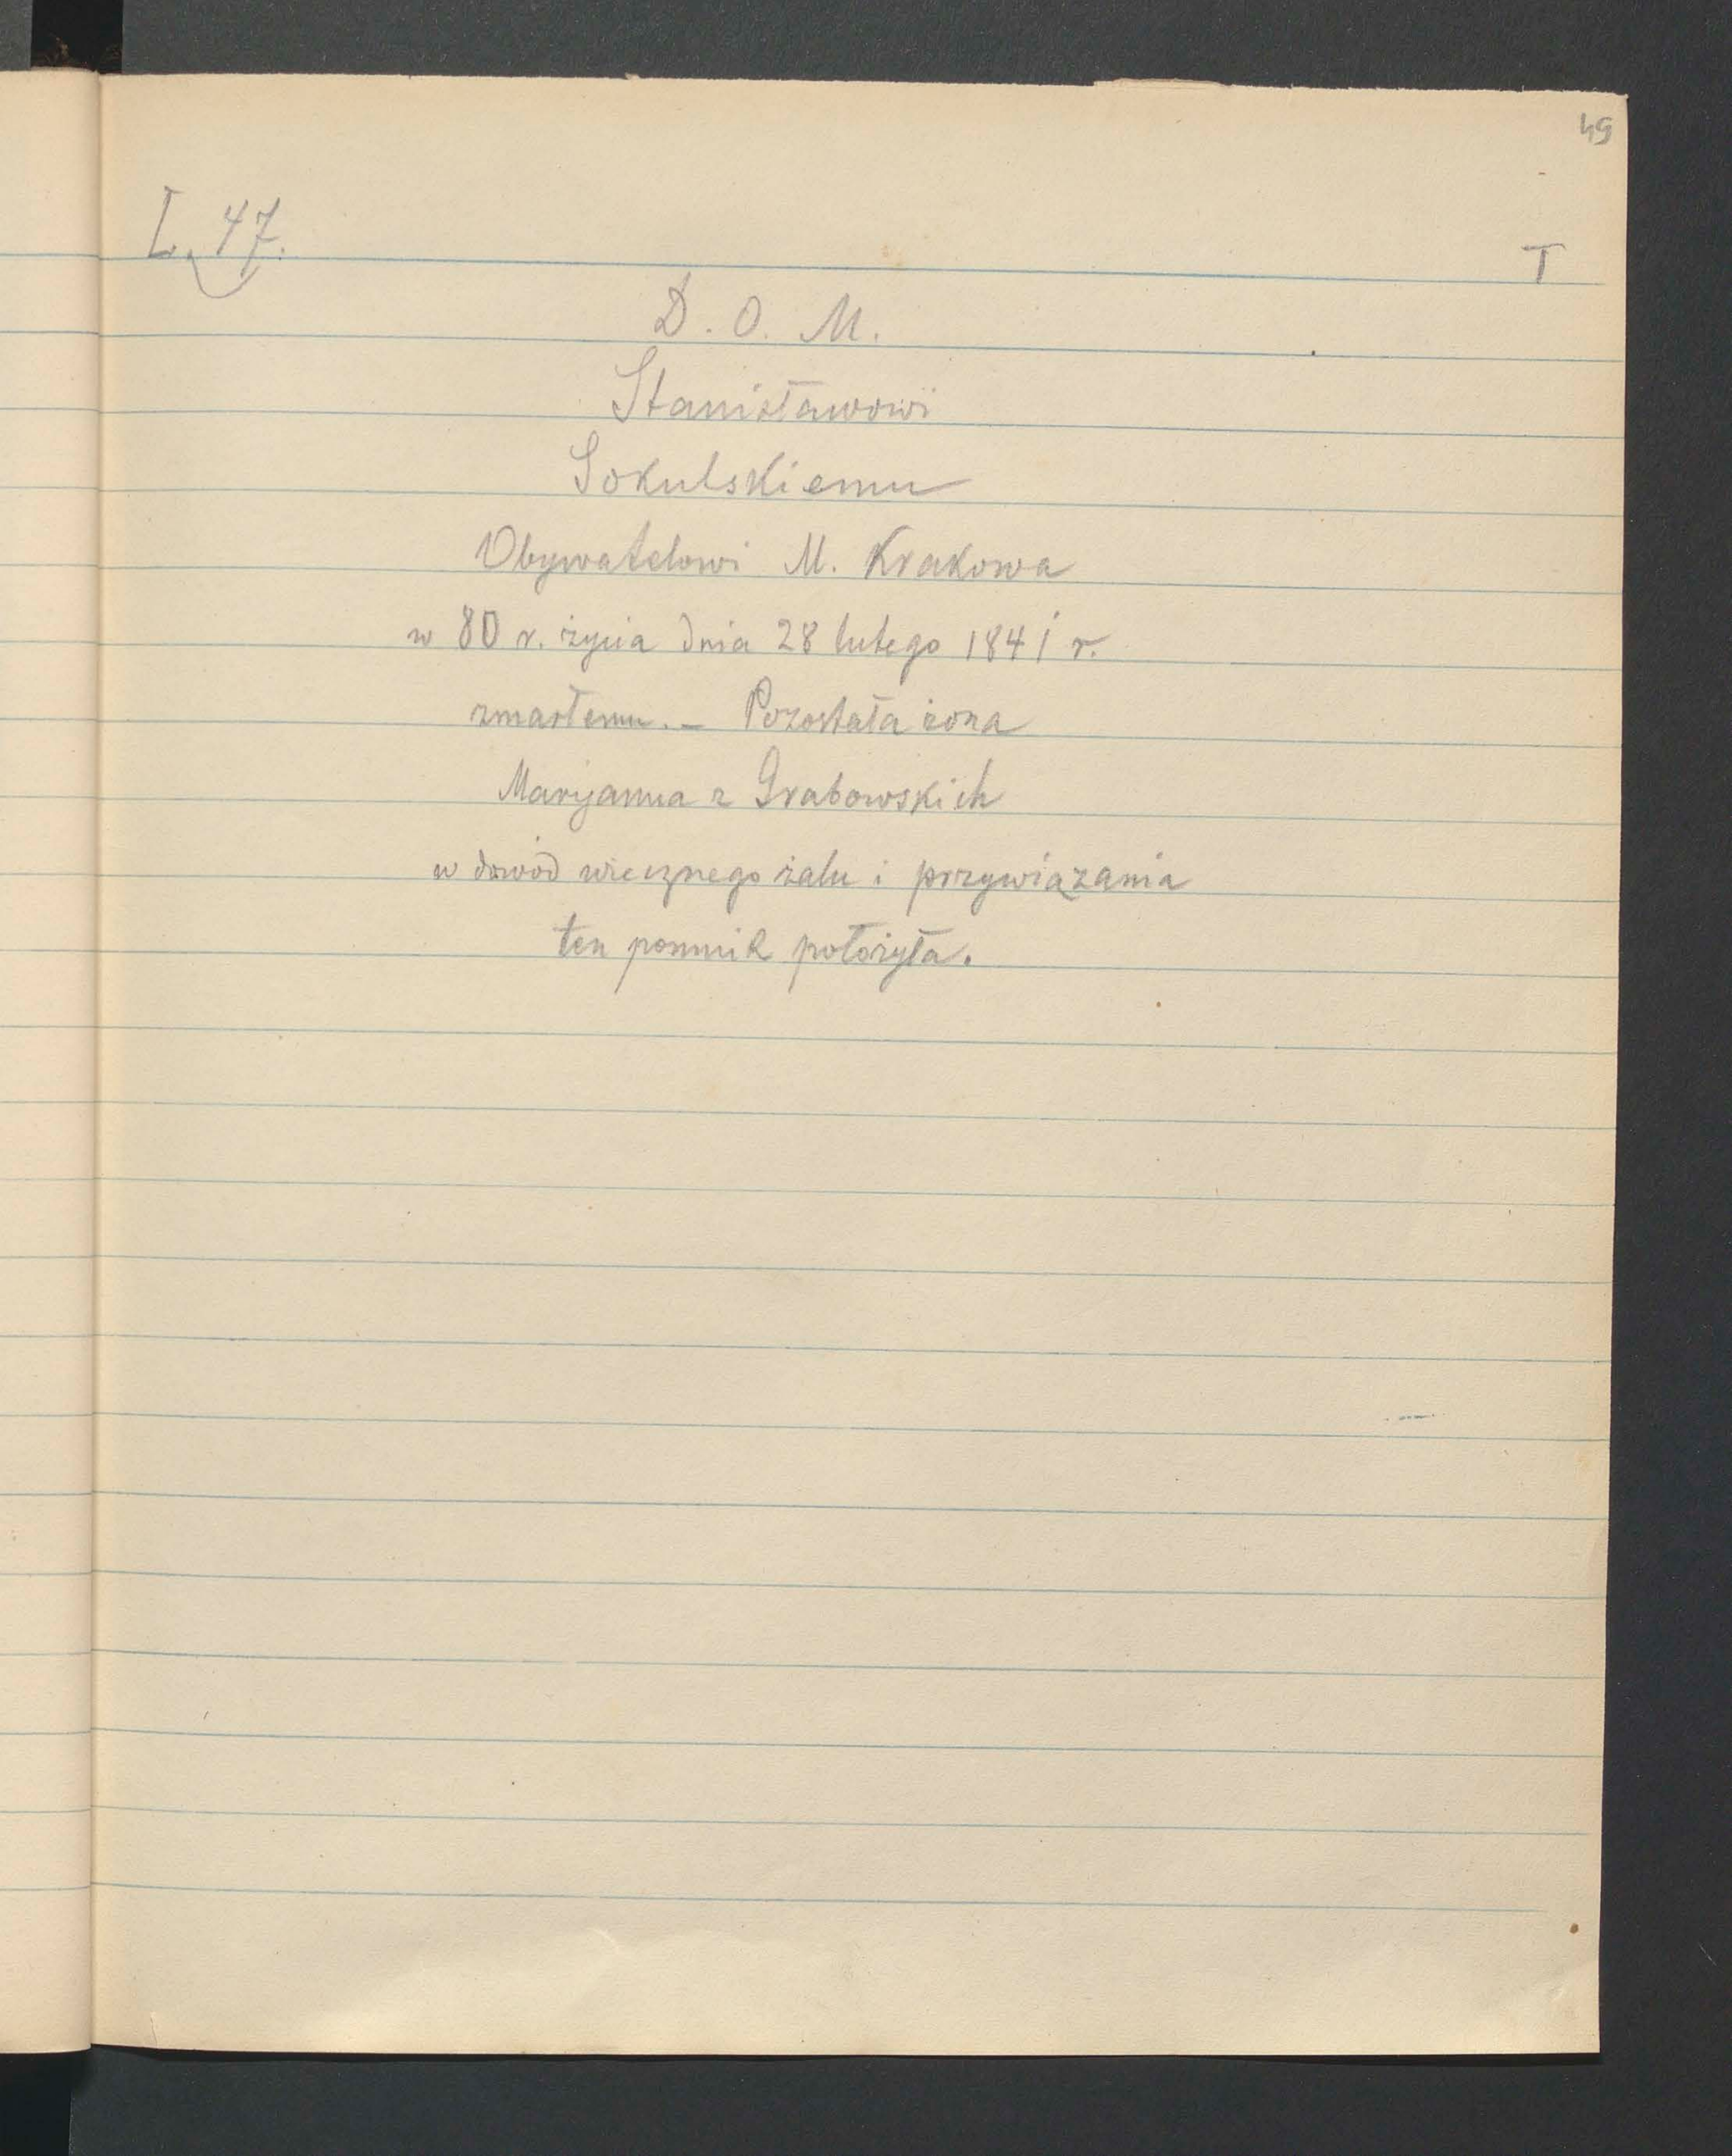 49
L. 47.
T
D. O. M.
Stanisławowi
Sokulskiemu
Obywatelowi M. Krakowa
w 80 r. życia dnia 28 lutego 1841 r.
zmarłemu. – Pozostała żona
Maryanna z Grabowskich
w dowód wiecznego żalu i przywiązania
ten pomnik położyła.